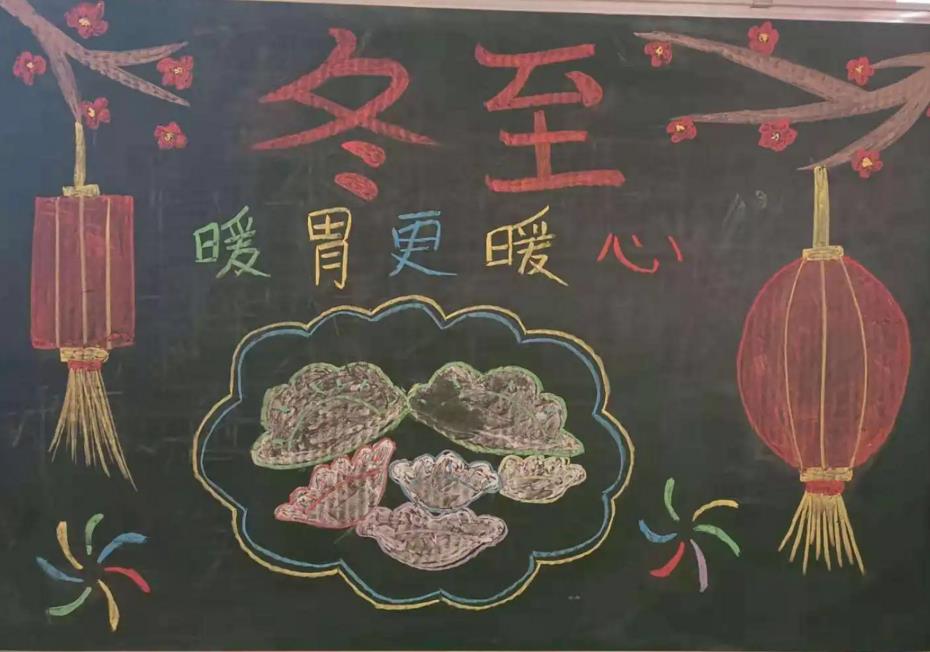 冬至
暖胃更暖心